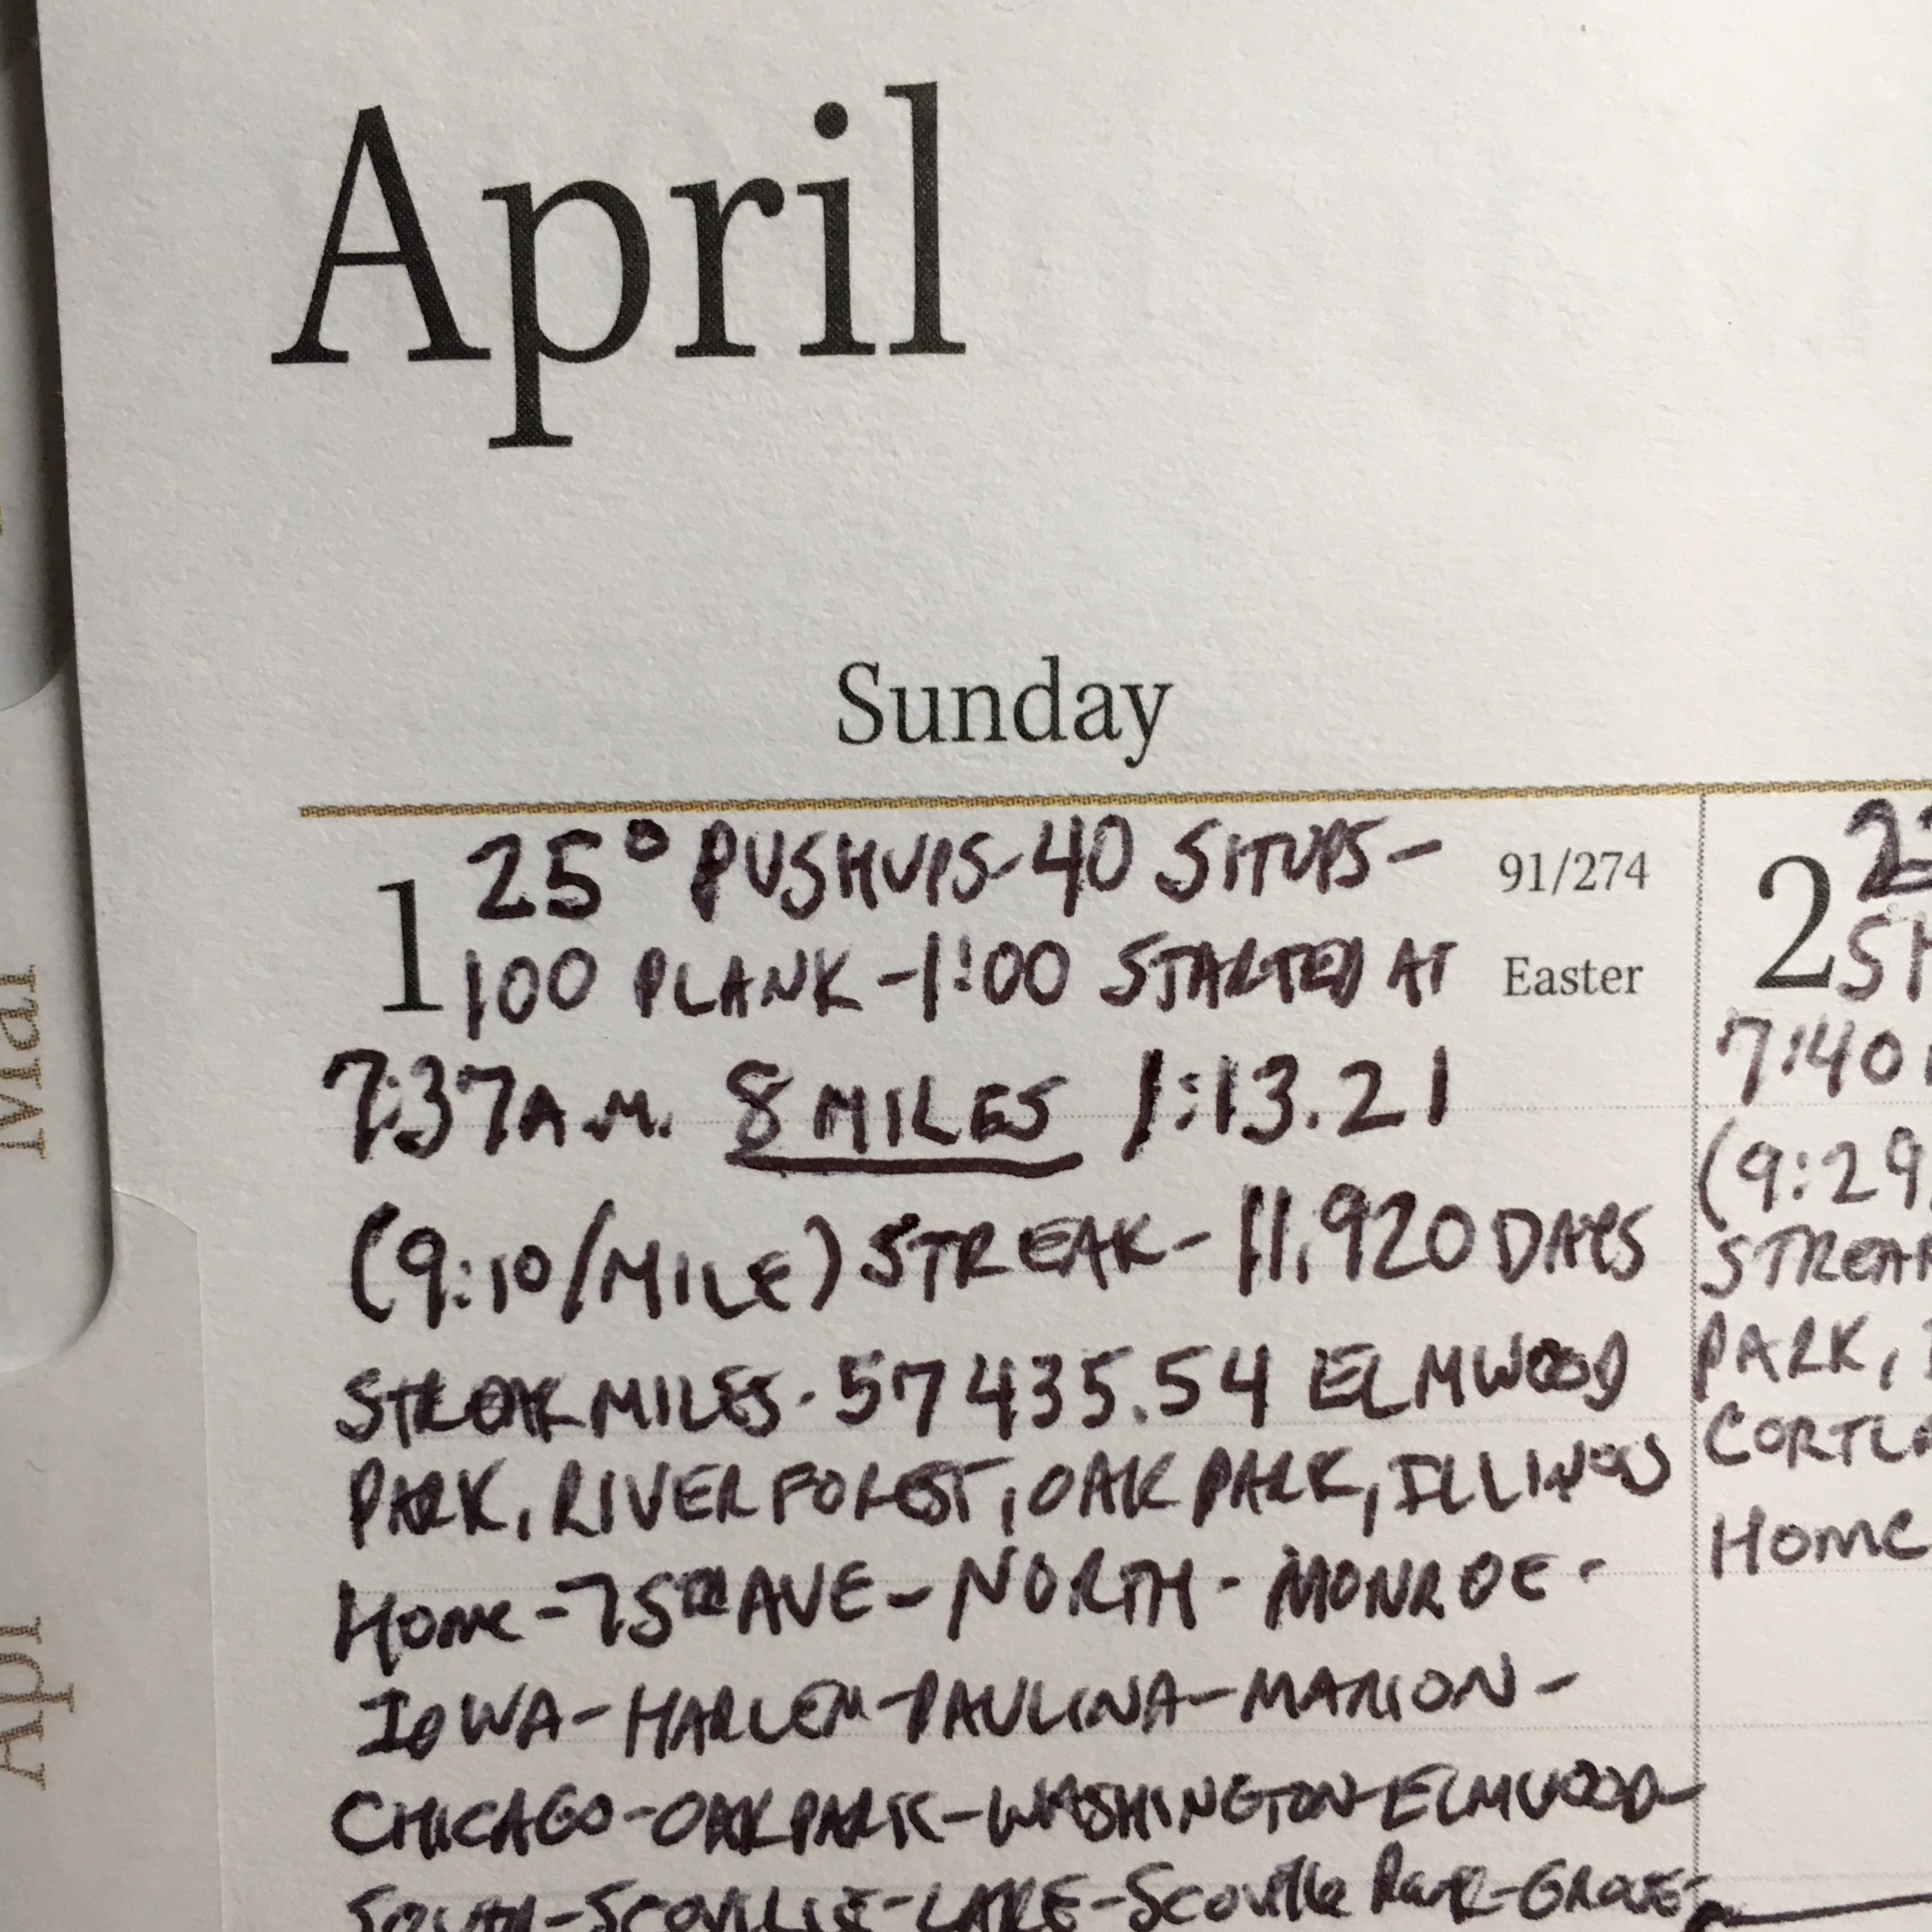 April
Sunday
1
25° PUSHUPS-40 SITUPS-
91/274
100 PLANK-1:00 STARTED AT
Easter
7:37A.M. 8 MILES 1:13.21
(9:10/MILE) STREAK-11,920 DAYS
STREAK MILES-57435.54 ELMWOOD
PARK, RIVER FOREST, OAK PARK, ILLINOIS
HOME-75TH AVE-NORTH-MONROE-
IOWA-HARLEM-PAULINA-MARION-
CHICAGO-OAK PARK-WASHINGTON-ELMWOOD-
SOUTH-SCOVILLE-LAKE-SCOVILLE PARK-GROVE-
2
7:40
(9:29
STREAK
PARK,
CORTLA
HOME
Mar
Apr